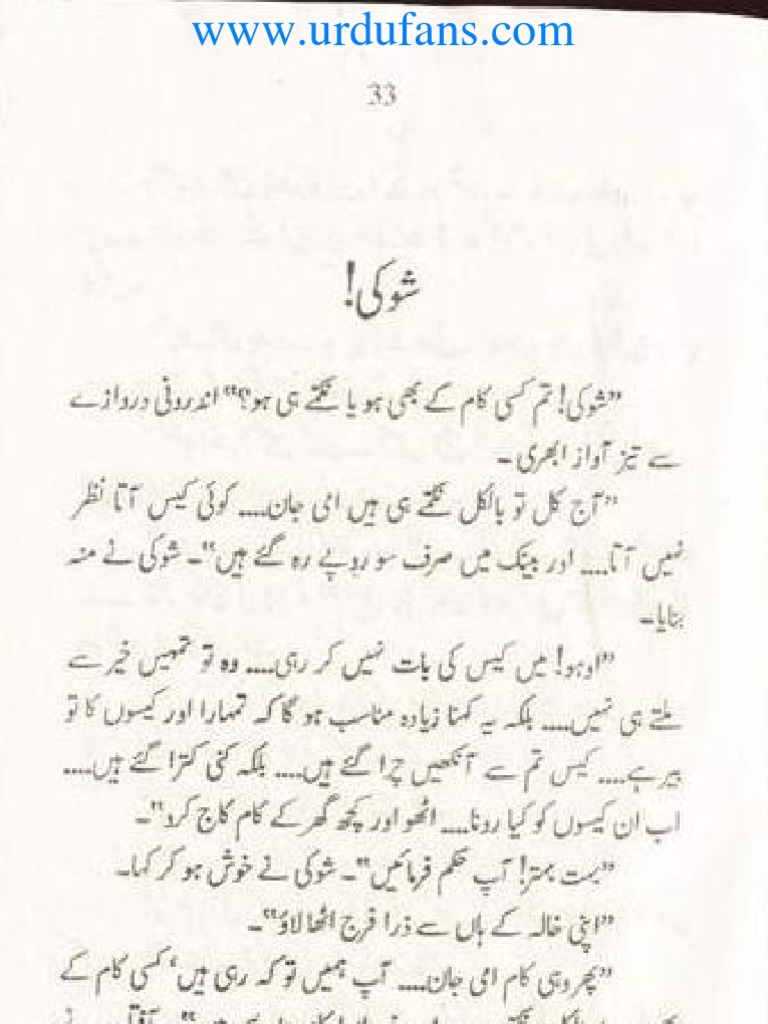 www.urdufans.com
33
شوکی!
”شوکی! تم کسی کام کے بھی ہو یا نکمے ہی ہو؟“ اندرونی دروازے
سے تیز آواز ابھری۔
”آج کل تو بالکل نکمے ہی ہیں امی جان.... کوئی کیس آتا نظر
نہیں آتا.... اور بینک میں صرف سو روپے رہ گئے ہیں“۔ شوکی نے منہ
بنایا۔
”اوہو! میں کیس کی بات نہیں کر رہی.... وہ تو تمہیں خیر سے
ملتے ہی نہیں.... بلکہ یہ کہنا زیادہ مناسب ہو گا کہ تمہارا اور کیسوں کا تو
بیر ہے.... کیس تم سے آنکھیں چرا گئے ہیں.... بلکہ کنی کترا گئے ہیں....
اب ان کیسوں کو کیا رونا.... اٹھو اور کچھ گھر کے کام کاج کرو“۔
”بہت بہتر! آپ حکم فرمائیں“۔ شوکی نے خوش ہو کر کہا۔
”اپنی خالہ کے ہاں سے ذرا فرج اٹھا لاؤ“۔
”پھر وہی کام امی جان.... آپ ہمیں تو کہ رہی ہیں، کسی کام کے